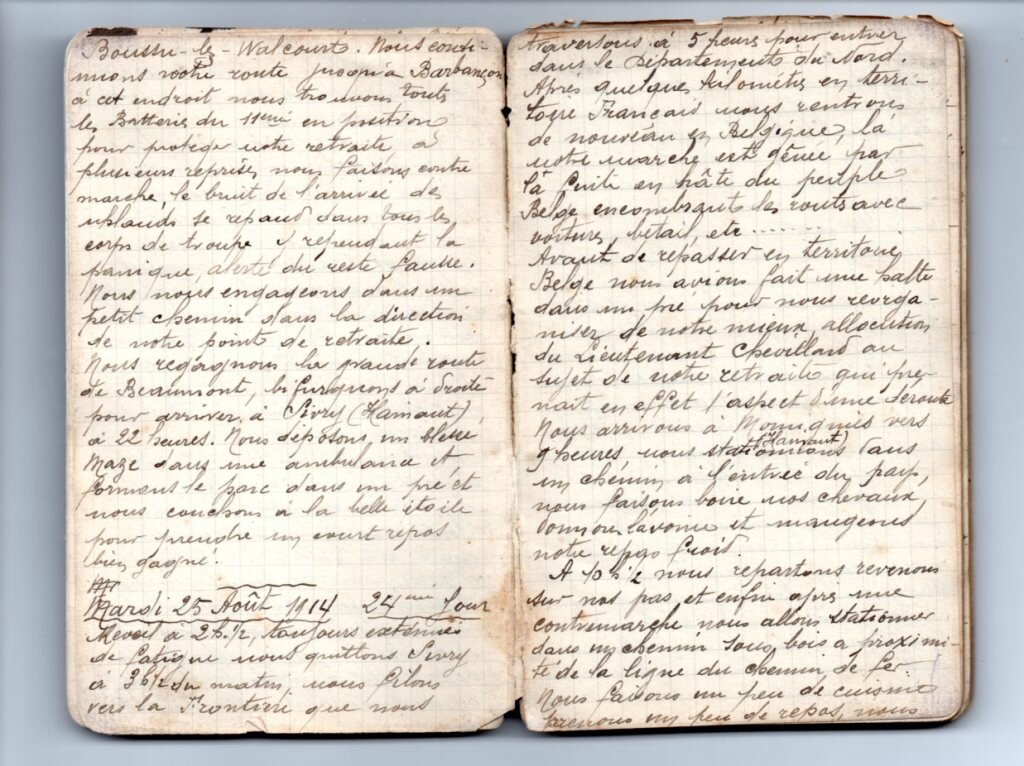 Boussu-lez-Walcourt. Nous conti-
nuons notre route jusqu'à Barbançon
à cet endroit nous trouvons toute
les Batteries du 11eme en position
pour protéger notre retraite, à
plusieurs reprises nous faisons contre
marche, le bruit de l'arrivée de
uhlands se repand dans tous les
corps de troupe y rependant la
panique, alerte du reste fausse.
Nous nous engageons dans un
petit chemin dans la direction
de notre point de retraite.
Nous regagnons la grande route
de Beaumont, bifurquons à droite
pour arriver à Sivry (Hainaut)
à 22 heures. Nous déposons un blessé
Maze dans une ambulance et
formons le parc dans un pré et
nous couchons à la belle étoile
pour prendre un court repos
bien gagné.
Mardi 25 Août 1914 24eme Jour
Réveil à 2h.1/2, toujours exténués
de fatigue nous quittons Sivry
à 3h1/2 du matin, nous filons
vers la Frontière que nous
traversons à 5 heures pour entrer
dans le Département du Nord.
Après quelques kilomètres en terri-
toire Français nous rentrons
de nouveau en Belgique, là
notre marche est gênée par
la fuite en hâte du peuple
Belge encombrant les routes avec
voitures, bétail, etc .......
Avant de repasser en territoire
Belge nous avions fait une halte
dans un pré pour nous reorga-
niser de notre mieux, allocution
du Lieutenant Chevillard au
sujet de notre retraite qui pre-
nait en effet l'aspect d'une déroute
Nous arrivons à Momignies vers
(Hainaut)
9 heures nous stationnons dans
un chemin à l'entrée du pays,
nous faisons boire nos chevaux,
donnons l'avoine et mangeons
notre repas froid.
A 10h1/2 nous repartons revenons
sur nos pas et enfin après une
contremarche nous allons stationner
dans un chemin sous bois a proximi-
té de la ligne du chemin de fer.
Nous faisons un peu de cuisine
prenons un peu de repos, nous